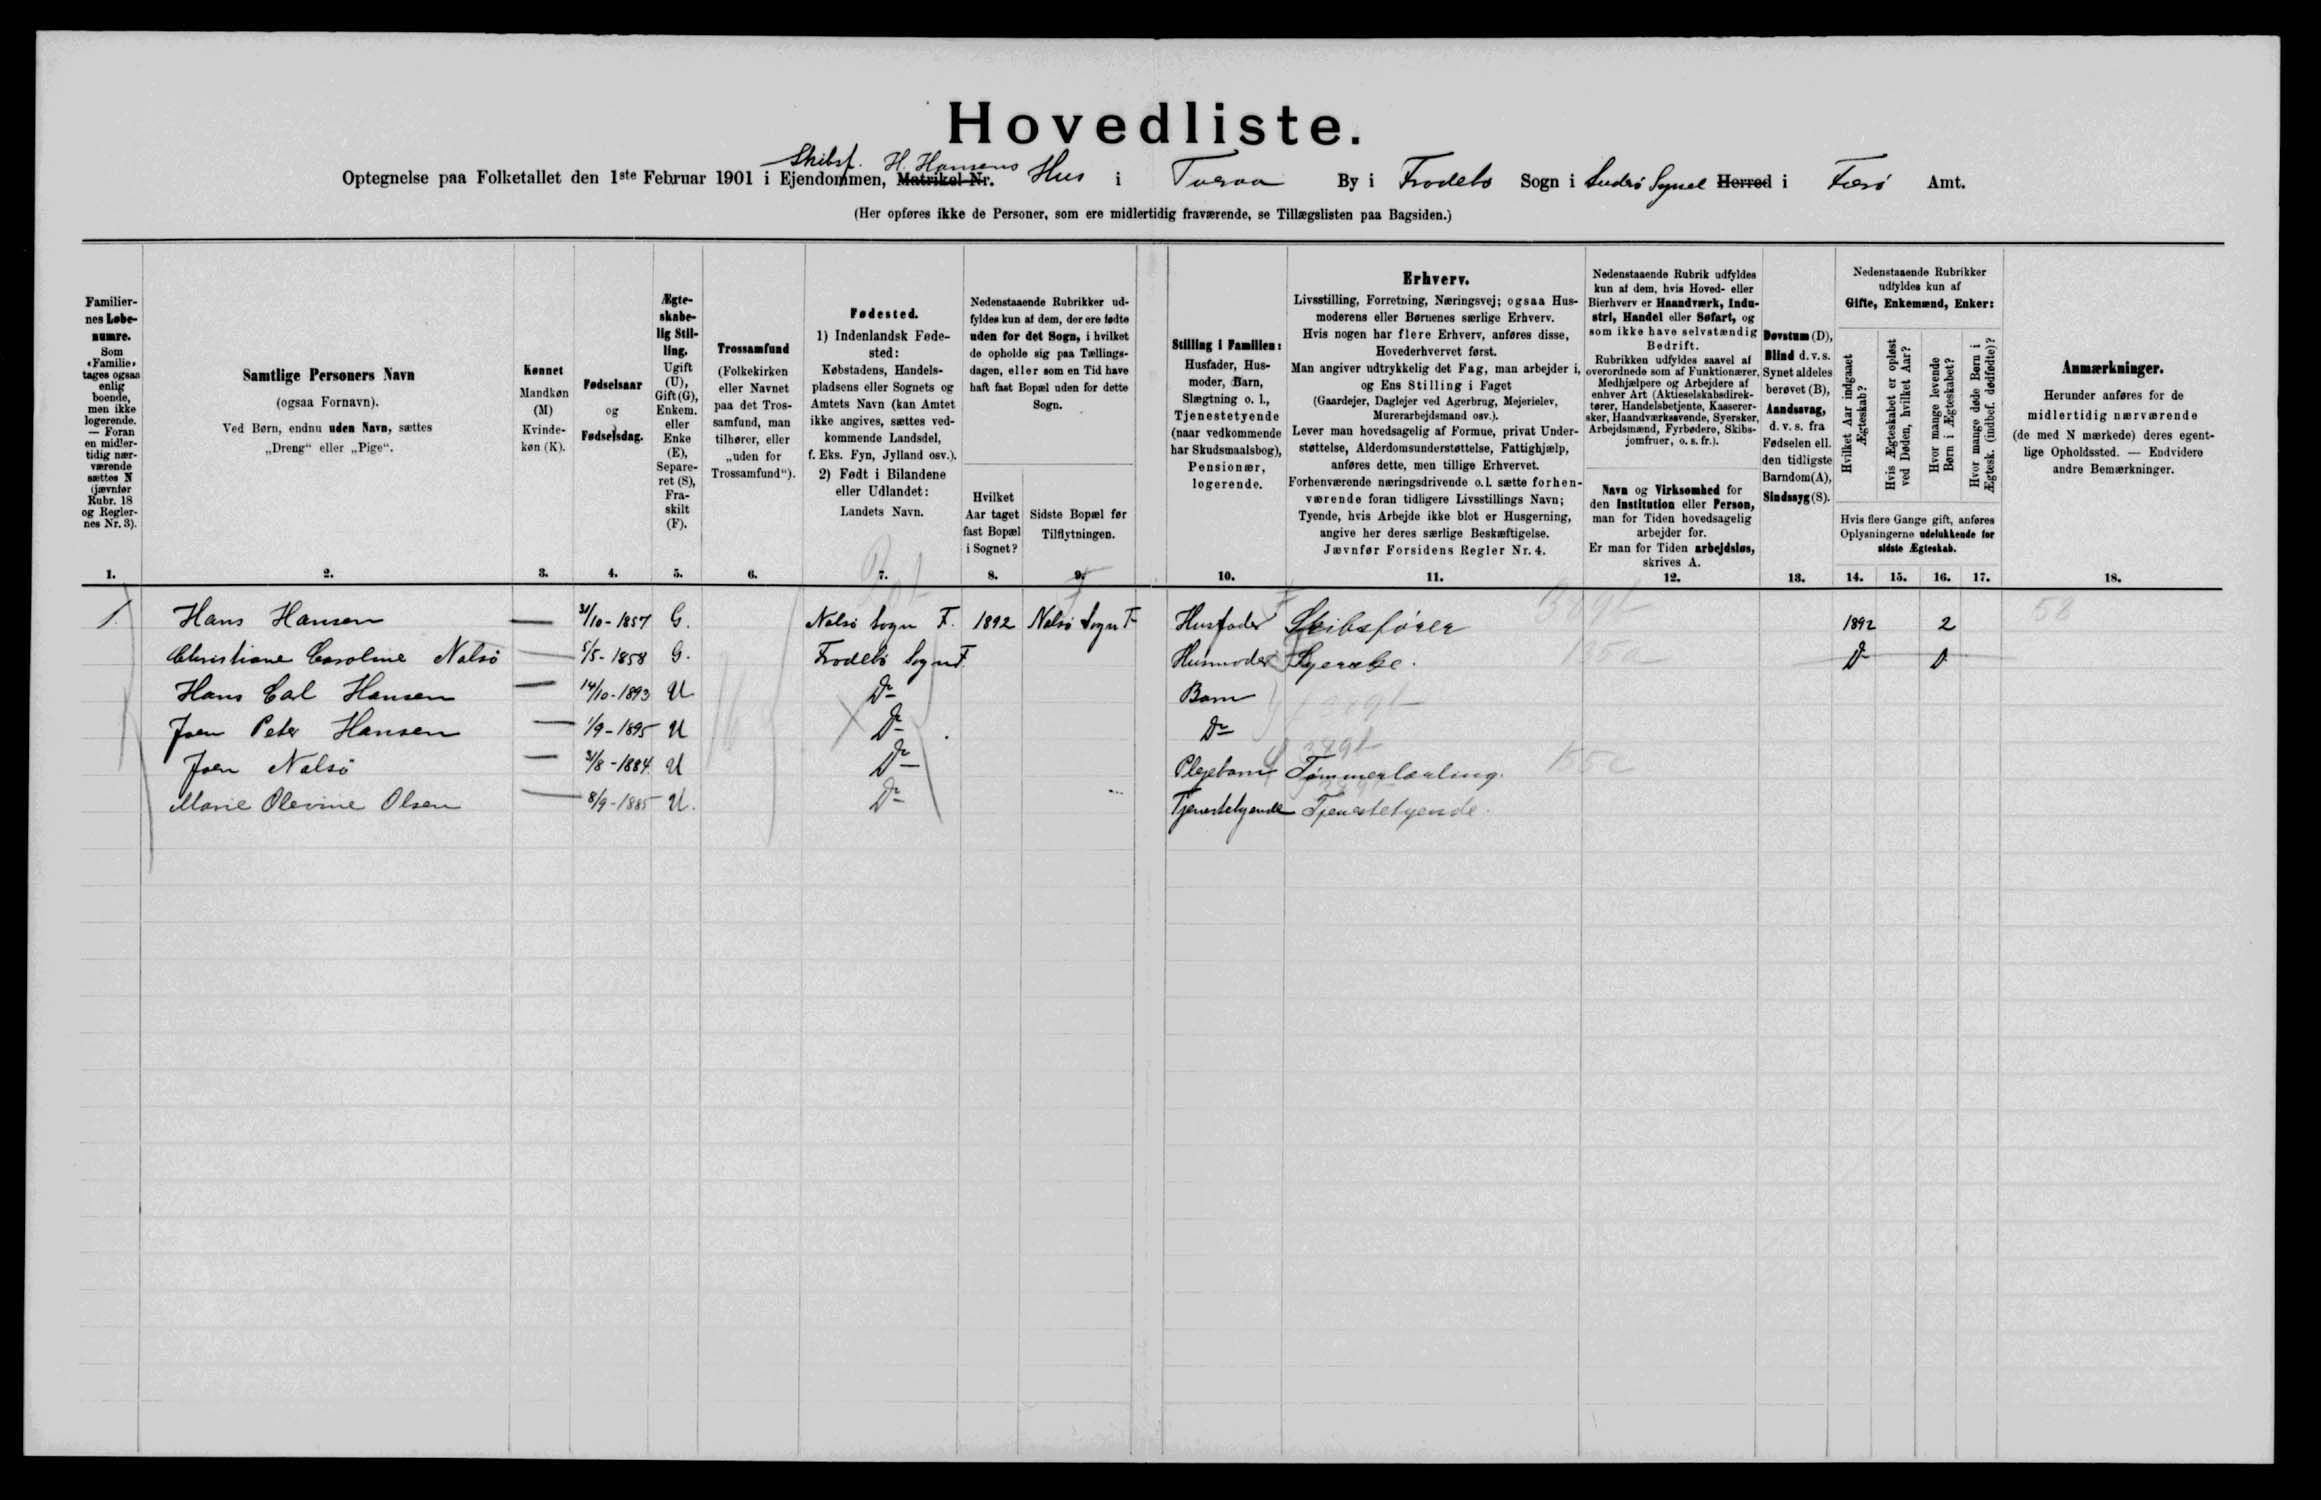 Hovedliste.
Skibsf. H. Hansens
Optegnelse paa Folketallet den 1ste Februar 1901 i Ejendommen, Matrikel-Nr. Hus i Tveraa By i Frodebø Sogn i Suderø Syssel Herred i Færø Amt.
(Her opføres ikke de Personer, som ere midlertidig fraværende, se Tillægslisten paa Bagsiden.)
Familier-
nes Løbe-
numre.
Som
«Familie»
tages ogsaa
enlig
boende,
men ikke
logerende.
— Foran
en midler-
tidig nær-
værende
sættes N
(jævnfør
Rubr. 18
og Regler-
nes Nr. 3).
1.
Samtlige Personers Navn
(ogsaa Fornavn).
Ved Børn, endnu uden Navn, sættes
„Dreng“ eller „Pige“.
2.
Kønnet
Mandkøn
(M)
Kvinde-
køn (K).
3.
Fødselsaar
og
Fødselsdag.
4.
Ægte-
skabe-
lig Stil-
ling.
Ugift
(U),
Gift (G),
Enkem.
eller
Enke
(E),
Separe-
ret (S),
Fra-
skilt
(F).
5.
Trossamfund
(Folkekirken
eller Navnet
paa det Tros-
samfund, man
tilhører, eller
„uden for
Trossamfund“).
6.
Fødested.
1) Indenlandsk Føde-
sted:
Købstadens, Handels-
pladsens eller Sognets og
Amtets Navn (kan Amtet
ikke angives, sættes ved-
kommende Landsdel,
f. Eks. Fyn, Jylland osv.).
2) Født i Bilandene
eller Udlandet:
Landets Navn.
7.
Nedenstaaende Rubrikker ud-
fyldes kun af dem, der ere fødte
uden for det Sogn, i hvilket
de opholde sig paa Tællings-
dagen, eller som en Tid have
haft fast Bopæl uden for dette
Sogn.
Hvilket
Aar taget
fast Bopæl
i Sognet?
8.
Sidste Bopæl før
Tilflytningen.
9.
Stilling i Familien:
Husfader, Hus-
moder, Barn,
Slægtning o. l.,
Tjenestetyende
(naar vedkommende
har Skudsmaalsbog),
Pensionær,
logerende.
10.
Erhverv.
Livsstilling, Forretning, Næringsvej; ogsaa Hus-
moderens eller Børnenes særlige Erhverv.
Hvis nogen har flere Erhverv, anføres disse,
Hovederhvervet først.
Man angiver udtrykkelig det Fag, man arbejder i,
og Ens Stilling i Faget
(Gaardejer, Daglejer ved Agerbrug, Mejerielev,
Murerarbejdsmand osv.).
Lever man hovedsagelig af Formue, privat Under-
støttelse, Alderdomsunderstøttelse, Fattighjælp,
anføres dette, men tillige Erhvervet.
Forhenværende næringsdrivende o. l. sætte forhen-
værende foran tidligere Livsstillings Navn;
Tyende, hvis Arbejde ikke blot er Husgerning,
angive her deres særlige Beskæftigelse.
Jævnfør Forsidens Regler Nr. 4.
11.
Nedenstaaende Rubrik udfyldes
kun af dem, hvis Hoved- eller
Bierhverv er Haandværk, Indu-
stri, Handel eller Søfart, og
som ikke have selvstændig
Bedrift.
Rubrikken udfyldes saavel af
overordnede som af Funktionærer,
Medhjælpere og Arbejdere af
enhver Art (Aktieselskabsdirek-
tører, Handelsbetjente, Kasserer-
sker, Haandværkssvende, Syersker,
Arbejdsmænd, Fyrbødere, Skibs-
jomfruer, o. s. fr.).
Navn og Virksomhed for
den Institution eller Person,
man for Tiden hovedsagelig
arbejder for.
Er man for Tiden arbejdsløs,
skrives A.
12.
Døvstum (D),
Blind d. v. s.
Synet aldeles
berøvet (B),
Aandssvag,
d. v. s. fra
Fødselen ell.
den tidligste
Barndom (A),
Sindssyg (S).
13.
Nedenstaaende Rubrikker
udfyldes kun af
Gifte, Enkemænd, Enker:
Hvilket Aar indgaaet
Ægteskab?
Hvis Ægteskabet er opløst
ved Døden, hvilket Aar?
Hvor mange levende
Børn i Ægteskabet?
Hvor mange døde Børn i
Ægtesk. (indbef. dødfødte)?
Hvis flere Gange gift, anføres
Oplysningerne udelukkende for
sidste Ægteskab.
14. 15. 16. 17.
Anmærkninger.
Herunder anføres for de
midlertidig nærværende
(de med N mærkede) deres egent-
lige Opholdssted. — Endvidere
andre Bemærkninger.
18.
1. Hans Hansen — 31/10-1857 G. Nolsø Sogn F. 1892 Nolsø Sogn F. Husfader Skibsfører 1892 2 58
Christiane Caroline Nolsø — 5/5-1858 G. Frodebø Sogn F. Husmoder Syerske. Do Do
Hans Carl Hansen — 14/10-1893 U Do Barn
Joen Peter Hansen — 1/9-1895 U Do Do
Joen Nolsø — 31/8-1884 U Do Plejebarn Tømmerlærling.
Marie Olevine Olsen — 8/9-1885 U. Do Tjenestetyende Tjenestetyende.